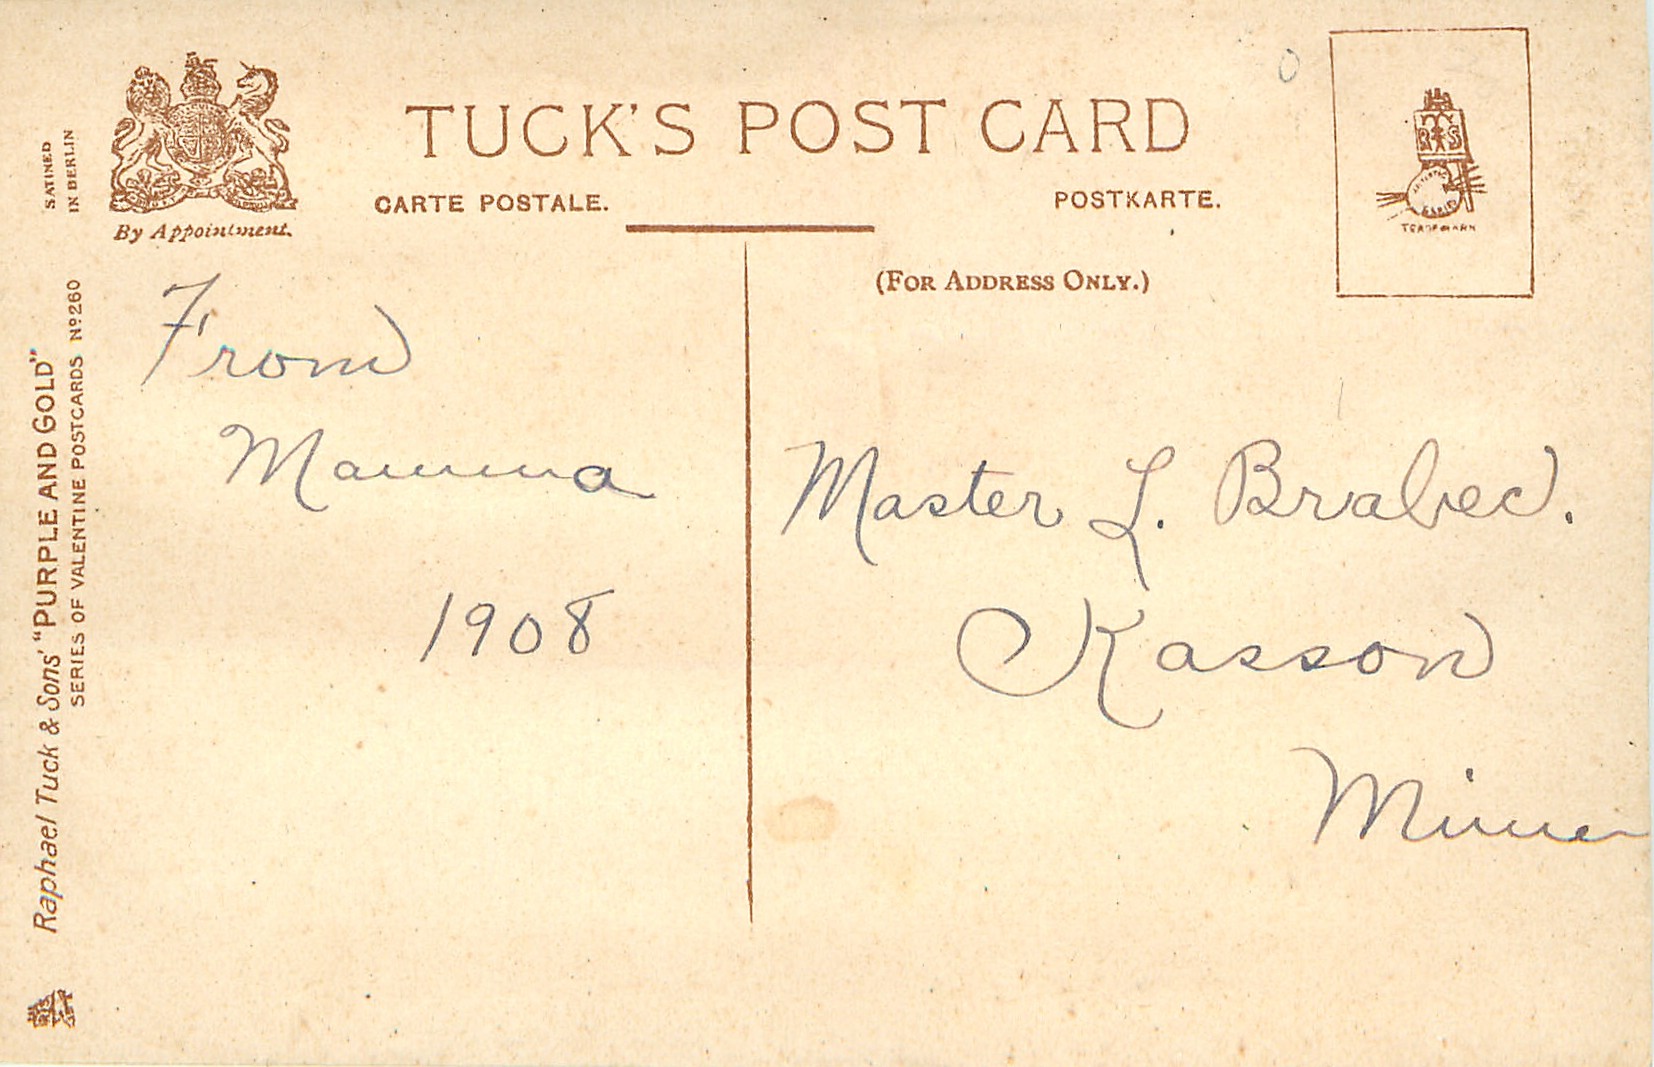 TUCK'S POST CARD
CARTE POSTALE.
POSTKARTE.
(FOR ADDRESS ONLY.)
By Appointment.
SATINED
IN BERLIN
Raphael Tuck & Sons' "PURPLE AND GOLD"
SERIES OF VALENTINE POSTCARDS Nº 260
From
Mamma
1908
Master L. Brabec.
Kasson
Minn